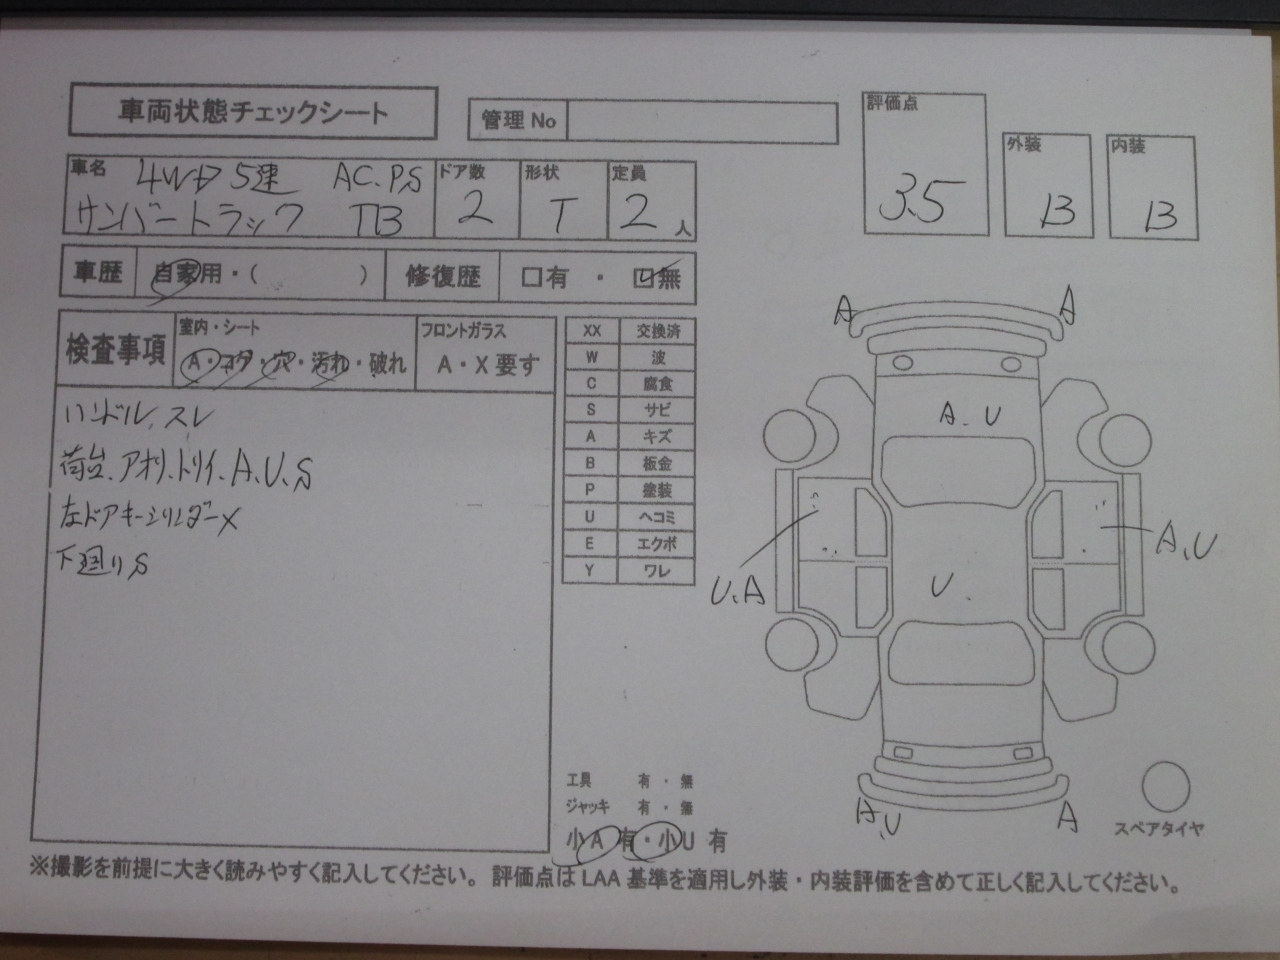 車両状態チェックシート
管理 No
評価点
3.5
外装
B
内装
B
車名
4WD 5速 AC.P.S
サンバートラック TB
ドア数
2
形状
T
定員
2 人
車歴 自家用・( ) 修復歴 □有 ・ □無
検査事項
室内・シート
A・コゲ・穴・汚れ・破れ
フロントガラス
A・X要す
ハンドル、スレ
荷台、アオリ、トリイ、A、U、S
左ドアキーシリンダーX
下廻りS
XX 交換済
W 波
C 腐食
S サビ
A キズ
B 板金
P 塗装
U ヘコミ
E エクボ
Y ワレ
A
A
A.U
A、U
U、A
U
A、U
A
スペアタイヤ
工具 有 ・ 無
ジャッキ 有 ・ 無
小A有・小U有
※撮影を前提に大きく読みやすく記入してください。評価点はLAA基準を適用し外装・内装評価を含めて正しく記入してください。